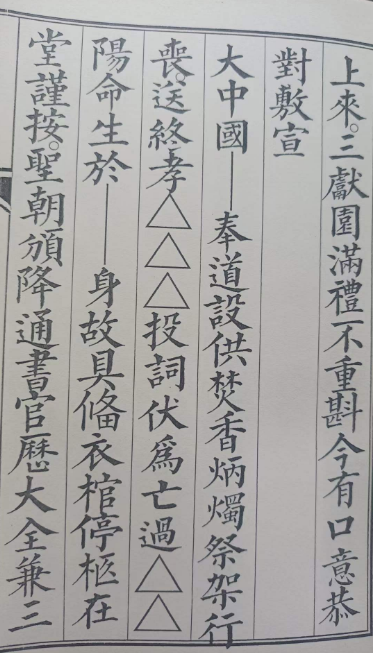 上來。三獻圓滿禮不重斟今有口意恭
對敷宣
大中國——奉道設供焚香炳燭祭架行
喪。送終孝△△△投詞伏爲亡過△△
陽命生於——身故具俻衣棺停柩在
堂謹按。聖朝頒降通書官曆大全兼三